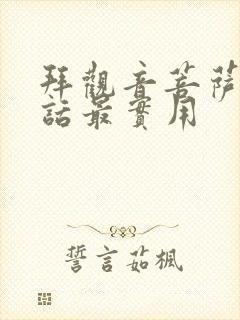 拜觀音菩薩
話最實用
誓言茹楓